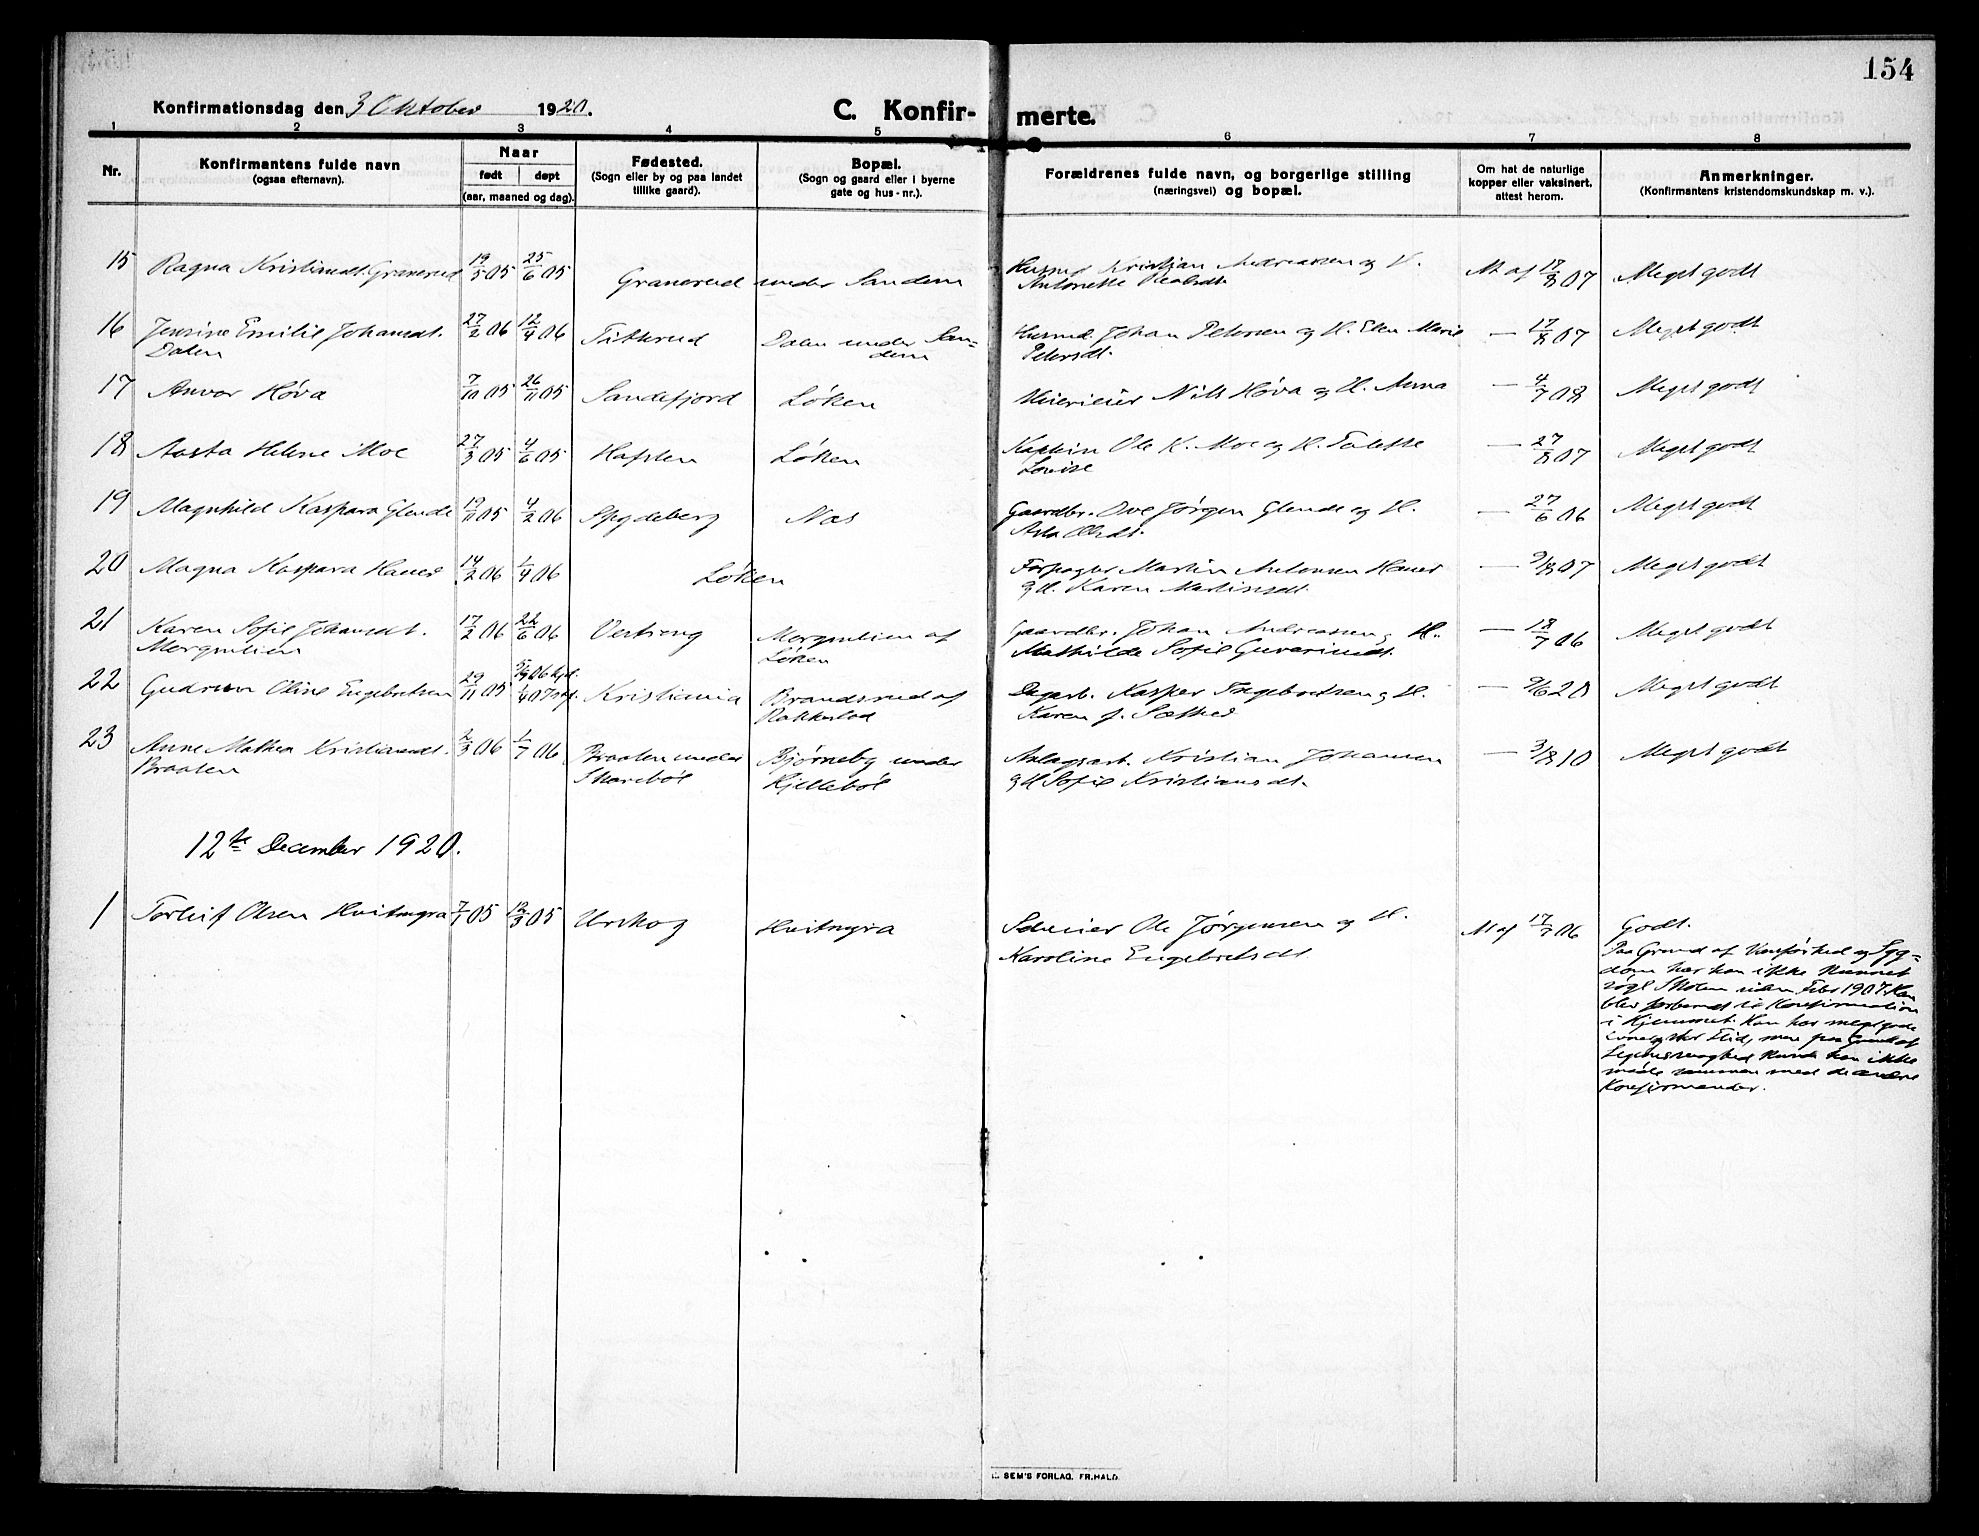 154
Konfirmationsdag den 3 Oktober 1920.
C. Konfirmerte.
1 2 3 4 5 6 7 8
Nr.
Konfirmantens fulde navn
(ogsaa efternavn).
Naar
født døpt
(aar, maaned og dag).
Fødested.
(Sogn eller by og paa landet
tillike gaard).
Bopæl.
(Sogn og gaard eller i byerne
gate og hus-nr.).
Forældrenes fulde navn, og borgerlige stilling
(næringsvei) og bopæl.
Om hat de naturlige
kopper eller vaksinert.
attest herom.
Anmerkninger.
(Konfirmantens kristendomskundskap m. v.).
15 Ragna Kristiansdt. Granerud 19/5 05 25/6 05 Granerud under Sandem Husmd Kristian Andreassen og H. At af 18/8 07 Meget godt
Antonette
16 Jensine Emilie Johansdt. 27/2 06 12/4 06 Titterud Dalen under San- Husmd. Johan Petersen og H. Ellen Marie — 17/8 07 Meget godt
Dalen dem Petersdt.
17 Anvor Høva 7/10 05 26/11 05 Sandefjord Løken Meierieier Nils Høva og H. Anna — 4/7 08 Meget godt
18 Aasta Helene Moe 27/3 05 4/6 05 Hafslen Løken Kaptein Ole K. Moe og H. Valette — 27/8 07 Meget godt
Lovise
19 Magnhild Kaspara Glende 19/11 05 4/2 06 Spydeberg Nas Gaardbr. Ove Jørgen Glende og H. — 27/6 06 Meget godt
Asta Olsdt.
20 Magna Kaspara Haner 14/2 06 1/4 06 Løken Forpagter Martin Antonsen Haner — 9/8 07 Meget godt
og H. Karen Martinsdt.
21 Karen Sofie Johansdt. 17/2 06 22/6 06 Vestreng Morgulien af Gaardbr. Johan Andreassen og H. — 18/7 06 Meget godt
Morgulien Løken Mathilde Sofie Guvariusdt.
22 Gudrun Oline Engebretsen 29/11 05 1/4 07 Kristiania Brandsrud af Dagarb. Kasper Ingebretsen og H. — 9/6 20 Meget godt
Rakkestad Karen f. Sæther
23 Anne Mathea Kristiansdt. 2/3 06 1/7 06 Braaten under Bjørneby under Anlægsarb. Kristian Johansen — 3/8 10 Meget godt
Braaten Skarebøl Kjellebøl og H Sofie Kristiansdt.
12te December 1920.
1 Torleif Olsen Hvitmyra 7/1 05 12/3 05 Urskog Hvitmyra Selveier Ole Jørgensen og H. At af 17/7 06 Godt.
Karoline Engebretsdt
Paa Grund af Vanførhed og Syg-
dom har han ikke kunnet
søge Skolen siden Febr 1907. Han
blev forberedt til Konfirmation
i Hjemmet. Han har meget gode
Evner og stor Flid, men paa Grund af
Legemssvaghed kunde han ikke
møde sammen med de andre
Konfirmander.
SEM'S FORLAG. FR.HALD.